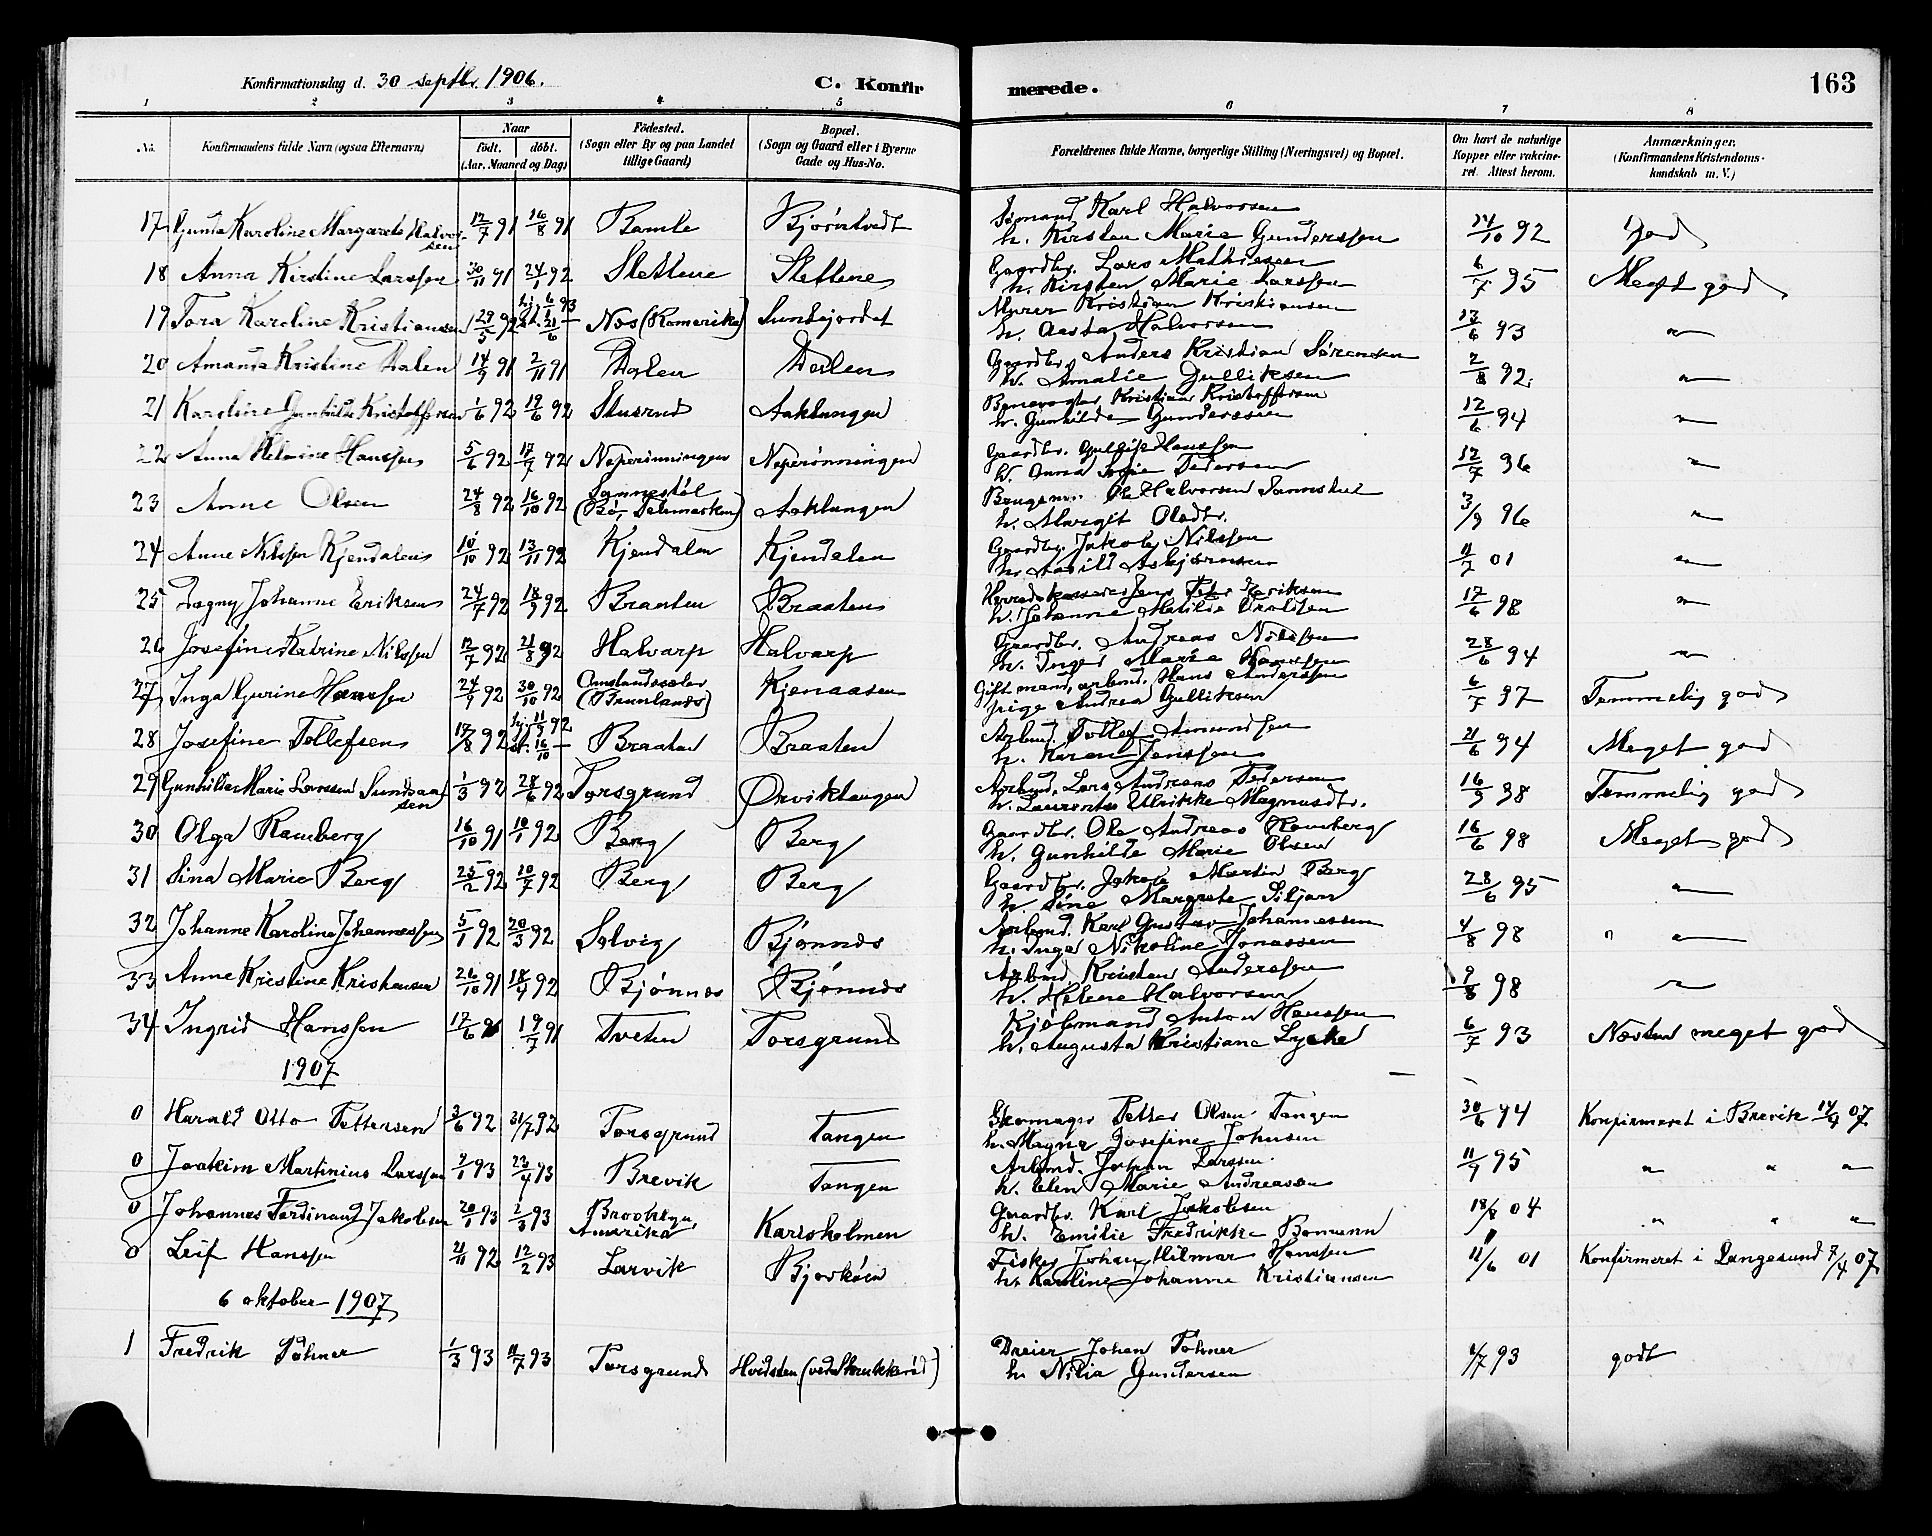 Konfirmationsdag d. 30 septbr. 1906.
C. Konfirmerede.
163
1 2 3 4 5 6 7 8
No. Konfirmandens fulde Navn (ogsaa Efternavn) Naar født. døbt. (Aar. Maaned og Dag) Fødested. (Sogn eller By og paa Landet tillige Gaard) Bopæl. (Sogn og Gaard eller i Byerne Gade og Hus-No. Forældrenes fulde Navne, borgerlige Stilling (Næringsvei) og Bopæl. Om havt de naturlige Kopper eller vakcineret. Attest herom. Anmærkninger. (Konfirmandens Kristendomskundskab m. V.)
17 Gunda Karoline Margarete Halvorsen 12/7 91 16/8 91 Bamle Bjørntvedt Sømand Karl Halvorsen
h. Kirsten Marie Gundersen 24/10 92 God
18 Anna Kirstine Larssen 30/11 91 24/1 92 Slettene Slettene Gaardbr. Lars Mathiesen
h. Kirsten Marie Larssen 6/7 95 Meget god
19 Tora Karoline Kristiansen 29/5 92 Nes (Romerike) Sunbejordet Murer Kristian Kristiansen
h. Aasta Halvorsen 13/6 93 "
20 Amanda Kristine Dalen 14/9 91 2/11 91 Dalen Dalen Gaardbr. Anders Kristian Sørensen
h. Amalie Gulliksen 2/8 92. "
21 Karoline Gunhilde Kristoffersen 1/6 92 19/6 92 Stusrud Aaklungen Banevogter Kristian Kristoffersen
h. Gunhilde Gunderssen 12/6 94 "
22 Anna Helmine Hanssen 5/6 92 17/7 92 Neperønningen Neperønningen Gaardbr. Gullik Hanssen
h. Anna Sofie Pedersen 12/7 96 "
23 Anne Olsen 24/8 92 16/10 92 Sannestøl (Bø, Telemarken) Aaklungen Ole Halvorsen Sannestøl
h. Margit Olsdtr. 3/9 96 "
24 Anne Nilssen Kjendalen 10/10 92 13/11 92 Kjendalen Kjendalen Gaardbr. Jakob Nilssen
h. Aasild Asbjørnsen 11/7 01 "
25 Dagny Johanne Eriksen 24/7 92 18/9 92 Braaten Braaten Herredskasserer Jens Peter Eriksen
h. Johanne Matilde 17/6 98 "
26 Josefine Katrine Nilssen 12/7 92 21/8 92 Halvarp Halvarp Gaardbr. Andreas Nilssen
h. Inger Marie Hanssen 28/6 94 "
27 Inga Gurine Hanssen 24/9 92 30/10 92 (Brunlanes) Kjenaasen Gift mand, arbmd. Hans Anderssen
pige Andrea Gulliksen 6/7 97 Temmelig god
28 Josefine Tollefsen 17/8 92 hj. 11/9 92 st. 16/10 Braaten Braaten Arbmd. Tollef Amundsen
h. Karen Jenssen 21/6 94 Meget god
29 Gunhilde Marie Larssen Sundsaasen 1/3 92 28/6 92 Porsgrund Ørviktangen Arbmd. Lars Andreas Pedersen
h. Laurentse Ulrikke Magnusdtr. 16/9 98 Temmelig god
30 Olga Ramberg 16/10 91 10/1 92 Berg Berg Gaardbr. Ole Andreas Ramberg
h. Gunhilde Marie Olsen 16/6 98 Meget god
31 Sina Marie Berg 25/2 92 10/7 92 Berg Berg Gaardbr. Jakob Martin Berg
h. Sine Margrete Siljan 28/6 95 "
32 Johanne Karoline Johannessen 5/1 92 20/3 92 Solvig Bjønnes Arbmd. Karl Gustav Johannessen
h. Inga Nikoline Jonassen 4/8 98 " "
33 Anne Kristine Kristensen 26/10 91 18/4 92 Bjønnes Bjønnes Arbmd Kristen Anderssen
h. Helene Halvorsen 9/8 98 "
34 Ingrid Hanssen 17/6 91 19/7 91 Tveten Porsgrund Kjøbmand Anton Hanssen
h. Augusta Kristiane Lycke 6/7 93 Næsten meget god
1907
0 Harald Otto Pettersen 3/6 92 31/7 92 Porsgrund Tangen Skomager Petter Olsen Tangen
h. Magna Josefine Johnsen 30/6 94 Konfirmeret i Brevik 14/4 07
0 Joakim Martinius Larssen 2/1 93 23/4 93 Brevik Tangen Arbmd. Johan Larssen
h. Elen Marie Andreassen 11/9 95 " " "
0 Johannes Ferdinand Jakobsen 20/1 93 2/3 93 Brooklyn, Amerika Karisholmen Gaardbr. Karl Jakobsen
h. Emilie Fredrikke Bomann 18/8 04 " " "
0 Leif Hanssen 21/11 92 12/2 93 Larvik Bjorkøen Fisker Johan Hilmar Hanssen
h. Karoline Johanne Kristiansen 11/6 01 Konfirmeret i Langesund 7/4 07
6 oktober 1907
1 Fredrik Pøhner 1/3 93 11/7 93 Porsgrund Hvidsten (ved Skrukkerød) Dreier Johan Pøhner
h. Nilia Gundersen 4/7 93 godt